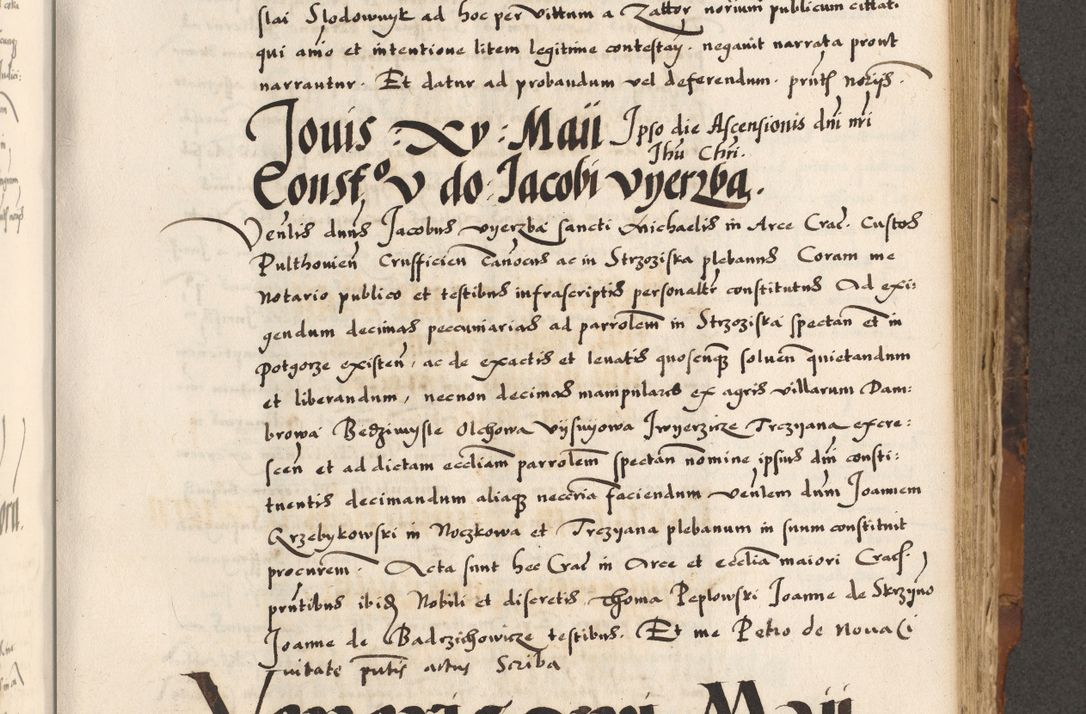 slai Slodownyk ad hoc per Vittum a Zattor norium publicum cittat.
qui aīo et intentione litem legitime contestaŋ. negauit narrata prout
narrantur. Et datur ad probandum vel deferendum. prñtƒ norijs.
Jouis : Xv : Maii Ipso die Ascensionis dnĩ nrĩ
Jhũ Chrĩ.
Constᵒ v do: Jacobi vyerzba.
Venlis dnus Jacobus vyerzba sancti Michaelis in Arce Crac. Custos
Pulthouien̄ Crusficien̄ Canocus ac in Strzoziska plebanus Coram me
Notario publico et testibus infrascriptis personaltr constitutus Ad exi:
gendum decimas peccuniarias ad parrolem in Strzoziska spectan̄ et in
potgorze existen̄, ac de exactis et leuatis quoscunq; soluen̄ quietandum
et liberandum, necnon decimas manipulares ex agris villarum Dam-
browa Bedzimysle Olchowa vysnyowa Jwyerzicze Trczyana excre-
scen̄ et ad dictam ecctiam parrolem spectan̄ nomine ipsius dnĩ consti:
tuentis decimandum aliaq; neccria faciendum venlem dnm Joannem
Grzebykowski in Noczkowa et Trczyana plebanum in suum constituit
procurem. Acta sunt hec Crac in Arce et ecclia maiori Cracƒ.
prñtibus ibid Nobili et discretis Thoma Peplowski Joanne de Skrzyno
Joanne de Badrzichowicze testibus. Et me Petro de Noua Ci
uitate pñtis actus Scriba
Veneris xvi Maij